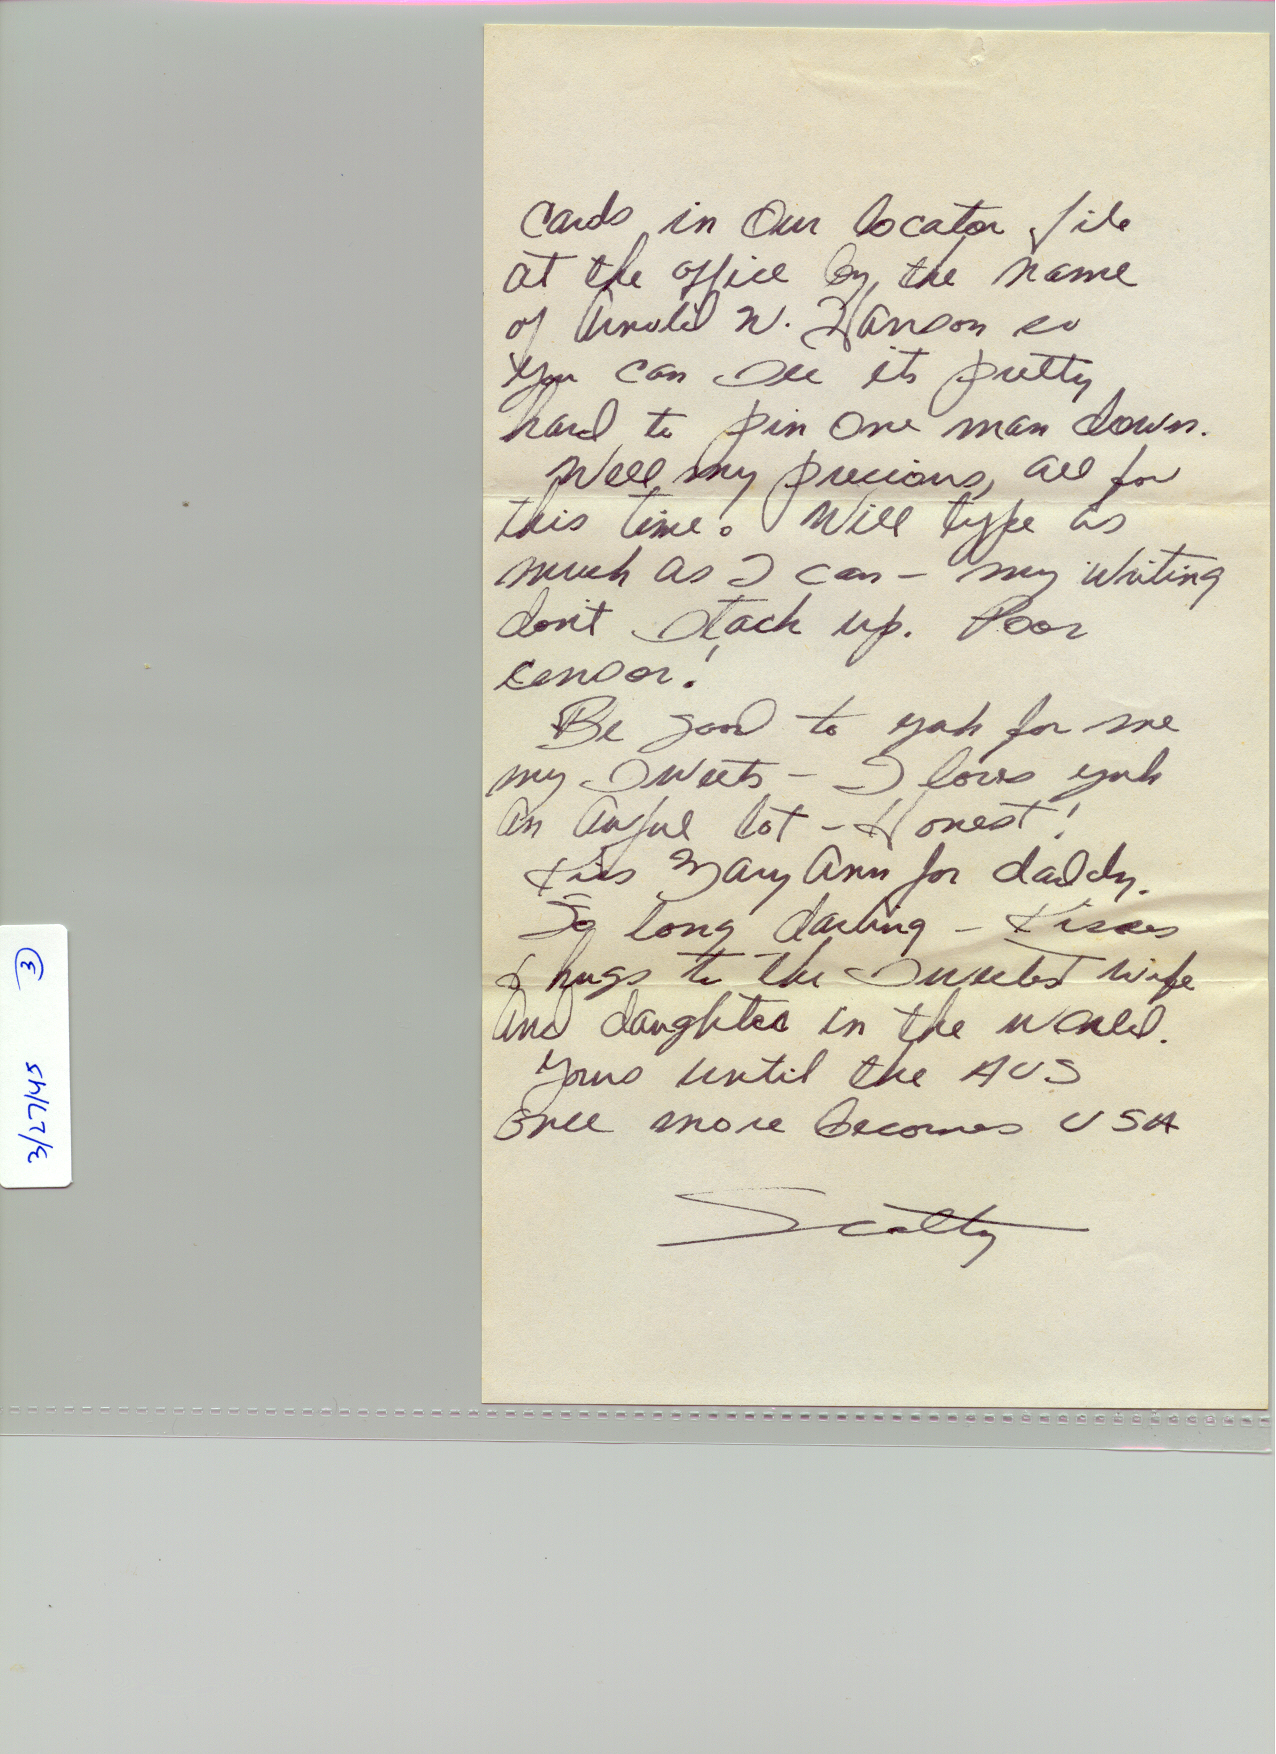 cards in our locator file
at the office by the name
of Arnold W. Hanson so
you can see its pretty
hard to pin one man down.
Well my precious, all for
this time. Will type as
much as I can - my writing
don't stack up. Poor
censor!
Be good to yah for me
my sweets - I loves yuh
an awful lot - Honest!
Kiss Mary Ann for daddy.
So long darling - Kisses
& hugs to the sweetest wife
and daughter in the world.
Yours until the AUS
once more becomes USA
Scotty
3/27/45 3